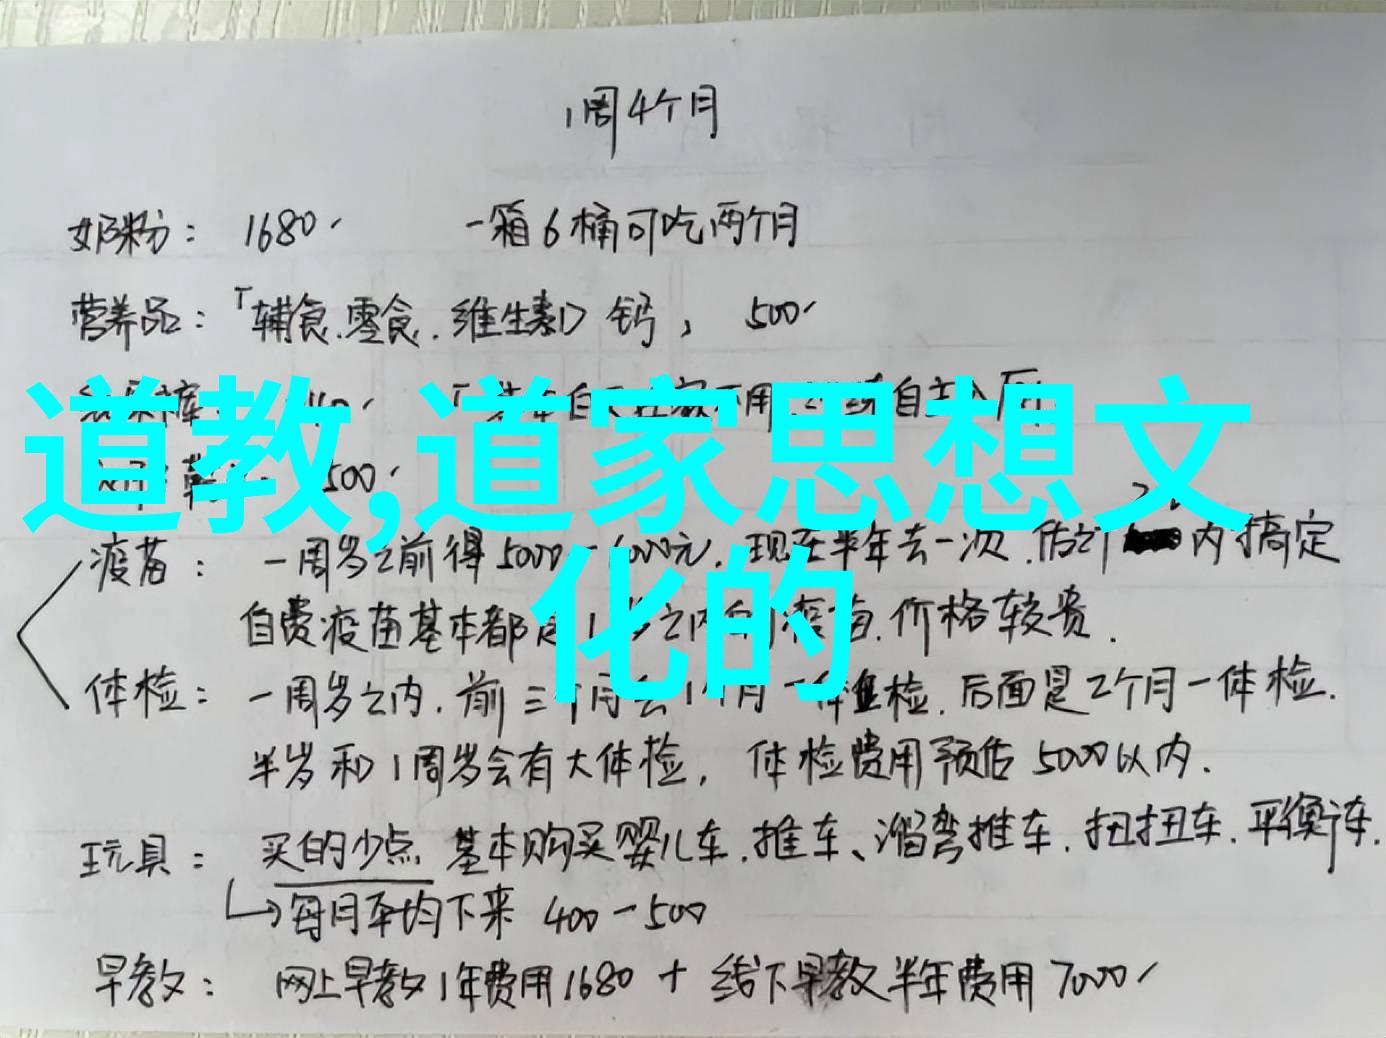 1周4个月
奶粉： 1680、 一箱6桶可吃两个月
营养品：「辅食、零食、维生素D 钙， 500、
道教,道家思想文
化的
500、
疫苗： 一周岁之前得5000-6000元，现在半年去一次，估计 内搞定
自费疫苗基本都 1岁之内 疫苗，价格较贵．
体检： 一周岁之内，前三个月 1个月一 体检，后面是2个月一体检．
半岁和1周岁会有大体检， 体检费用预估5000以内．
玩具： 买的少点 基本购买婴儿车、推车、溜弯推车、扭扭车、平衡车．
每月平均下来 400-500
早教： 网上早教1年费用1680 + 线下早教半年费用7000、